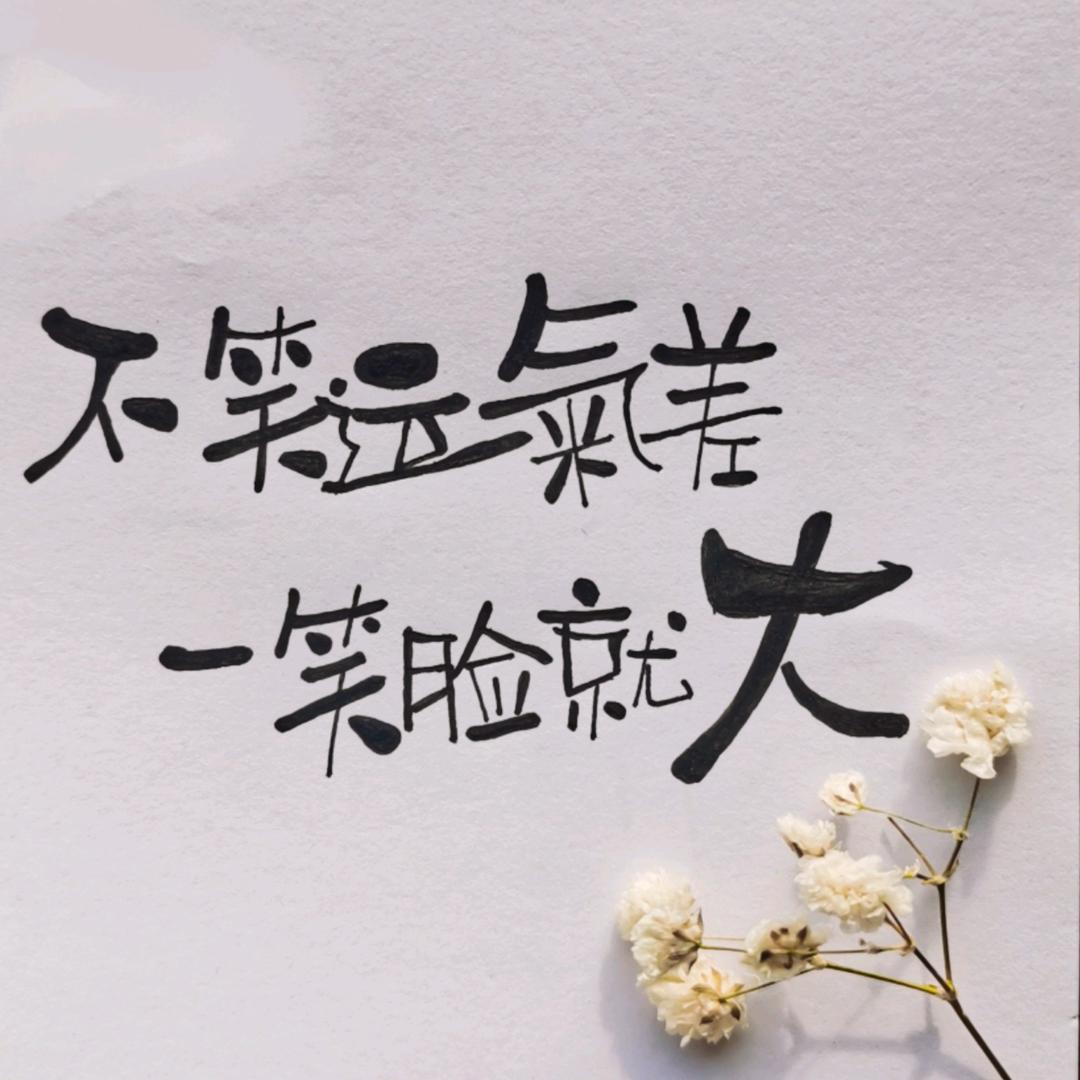 不笑运氣差
一笑脸就大